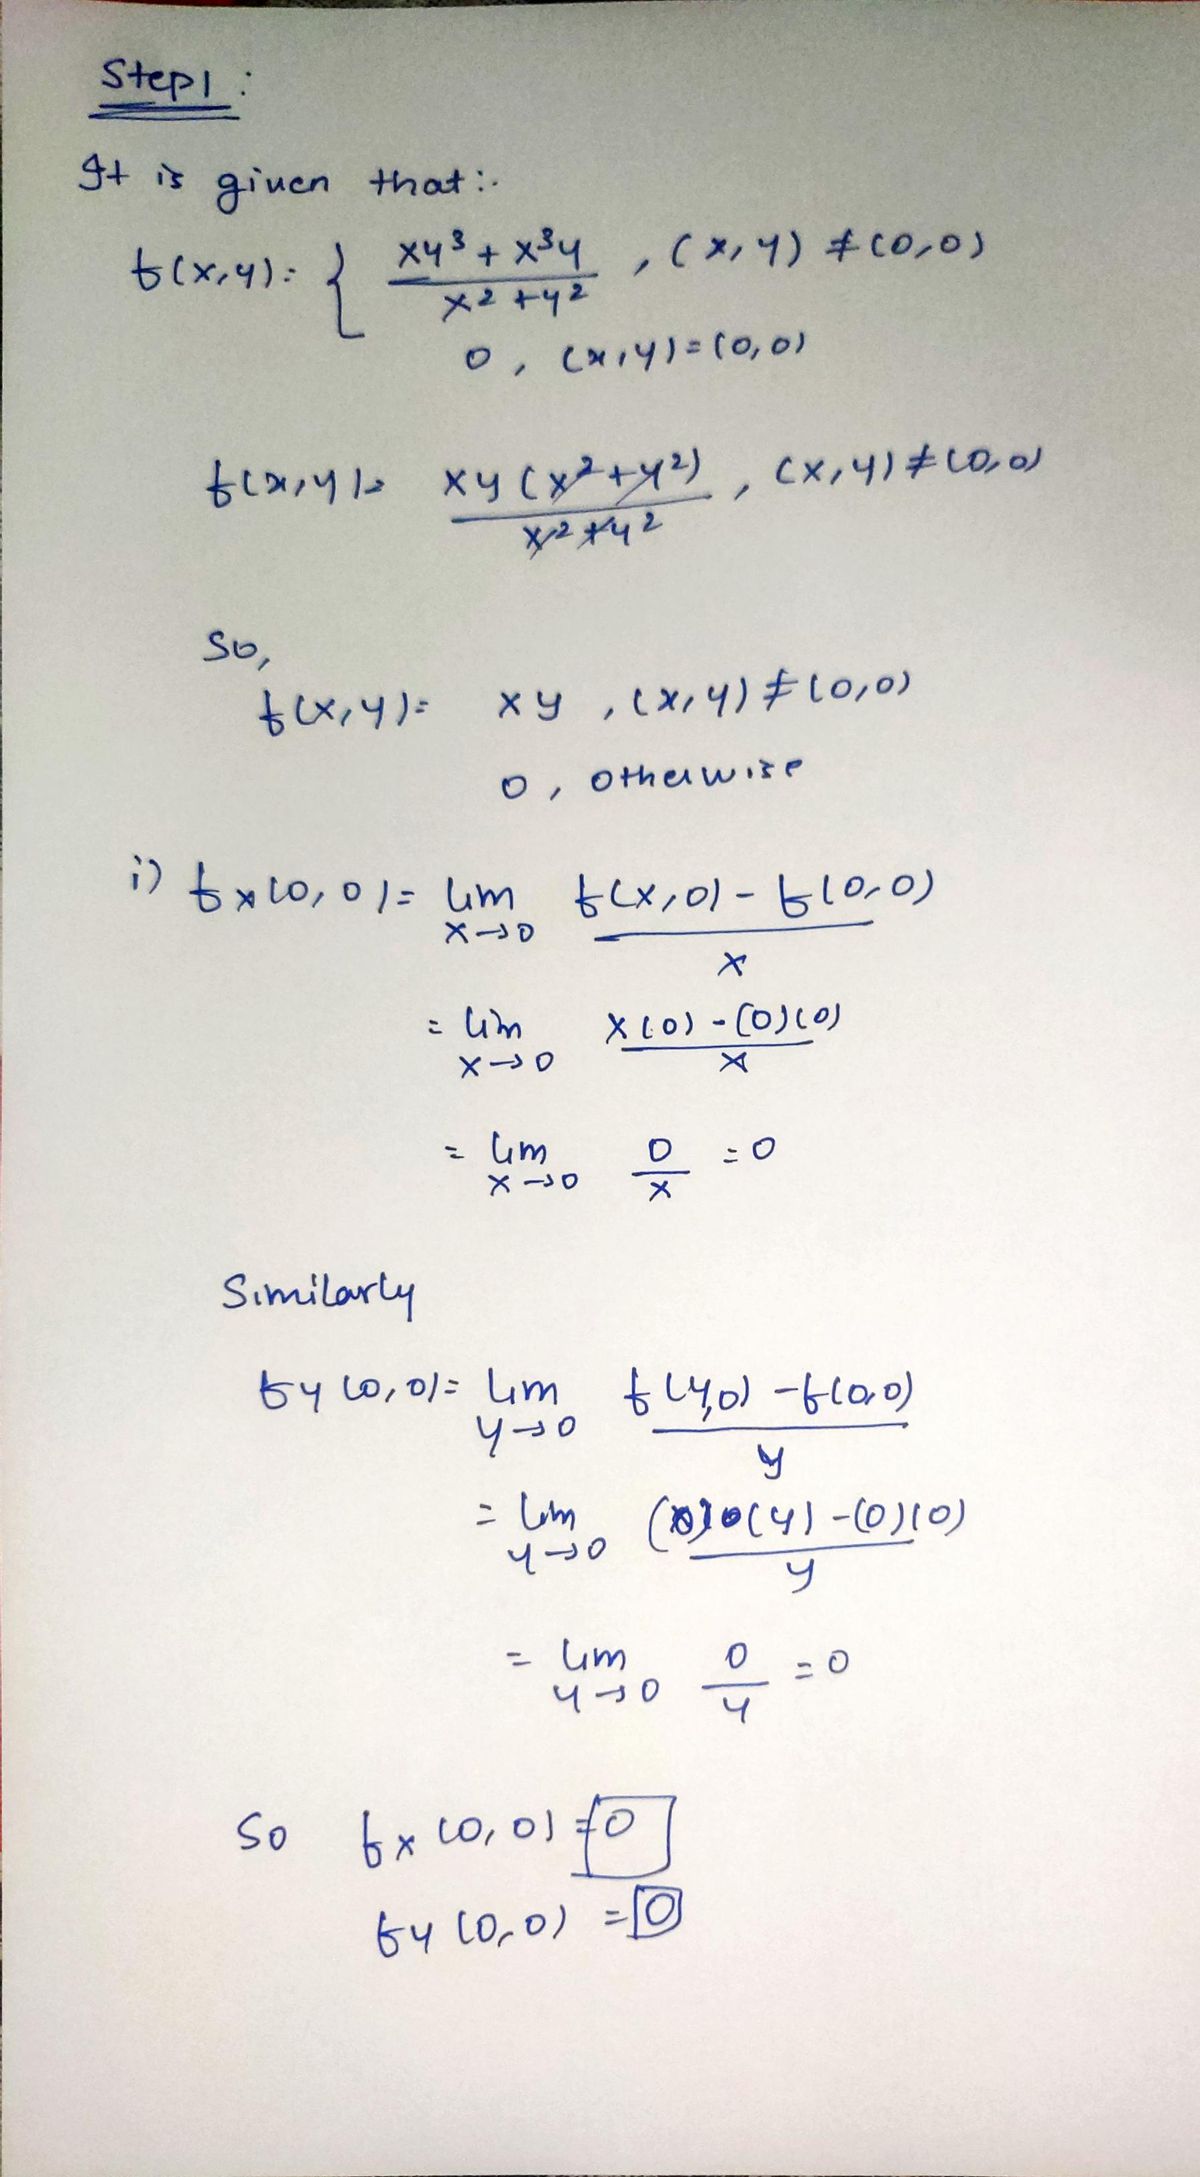 Step1:
It is given that:-
f(x,y)= { xy³ + x³y / x² + y² , (x,y) ≠ (0,0)
0 , (x,y)=(0,0)
f(x,y)= xy(x²+y²) / x²+y² , (x,y) ≠ (0,0)
So,
f(x,y)= xy , (x,y) ≠ (0,0)
0 , otherwise
i) fx(0,0)= lim x→0 f(x,0) - f(0,0) / x
= lim x→0 x(0) - (0)(0) / x
= lim x→0 0/x = 0
Similarly
fy(0,0)= lim y→0 f(y,0) - f(0,0) / y
= lim y→0 0(y) - (0)(0) / y
= lim y→0 0/y = 0
So fx(0,0) = 0
fy(0,0) = 0